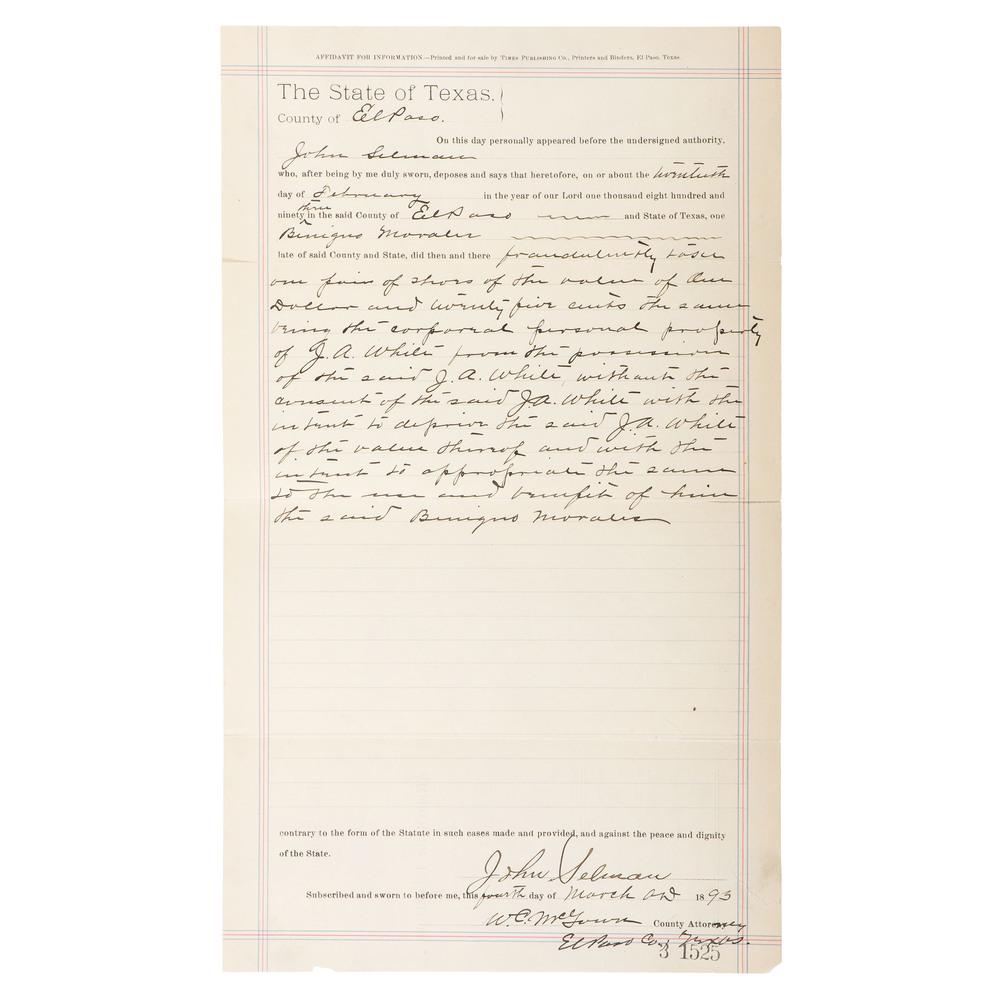 AFFIDAVIT FOR INFORMATION.—Printed and for sale by TIMES PUBLISHING CO., Printers and Binders, El Paso, Texas.
The State of Texas. )
County of El Paso.
On this day personally appeared before the undersigned authority,
John Selman
who, after being by me duly sworn, deposes and says that heretofore, on or about the twentieth
day of February in the year of our Lord one thousand eight hundred and
ninety three in the said County of El Paso and State of Texas, one
Benigno Morales
late of said County and State, did then and there fraudulently take
one pair of shoes of the value of One
Dollar and twenty five cents the same
being the corporeal personal property
of J. A. White from the possession
of the said J. A. White, without the
consent of the said J. A. White with the
intent to deprive the said J. A. White
of the value thereof and with the
intent to appropriate the same
to the use and benefit of him
the said Benigno Morales
contrary to the form of the Statute in such cases made and provided, and against the peace and dignity
of the State.
John Selman
Subscribed and sworn to before me, this fourth day of March AD 1893
W. C. McGown County Attorney
El Paso Co., Texas.
3 1525